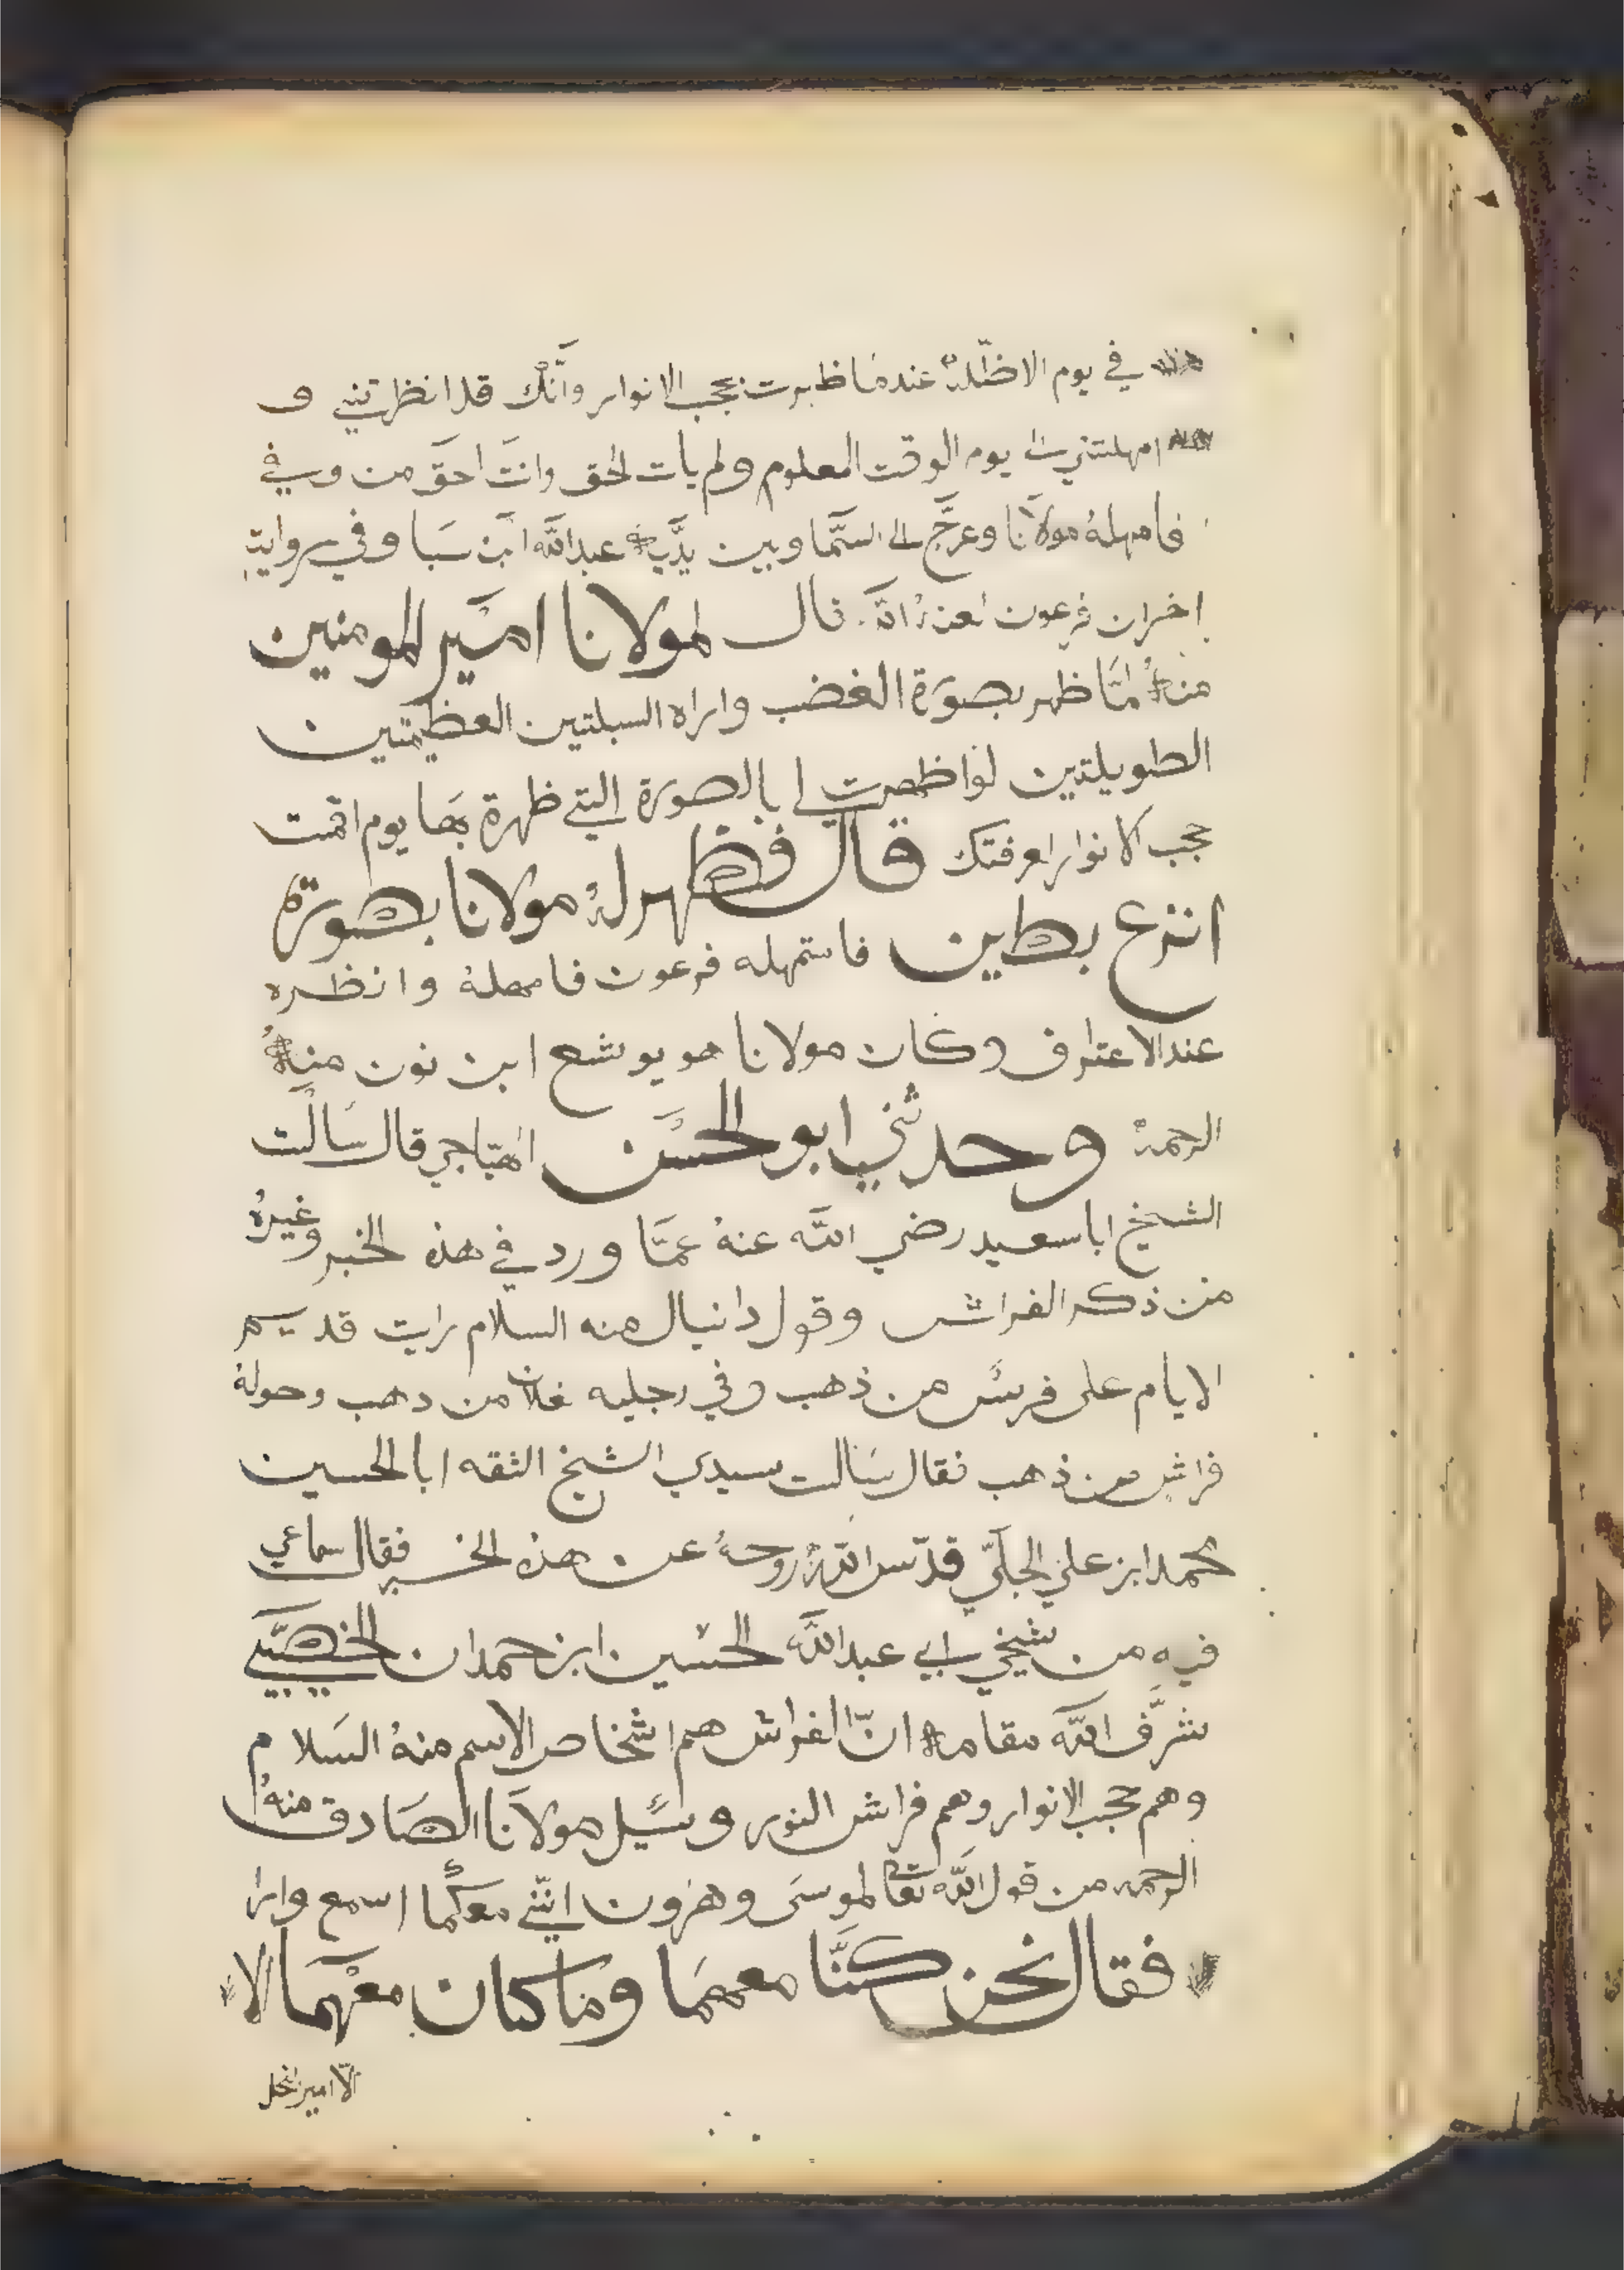 في يوم الاضّلة عندما ظهرت بحجب الانوار وانّك قد انظرتني و
امهلتني الى يوم الوقت المعلوم ولم يات الحق وانت احق من وفي
فامهله مولانا وعرّج الى السّما وبين يدَّيه عبد اللّه ابن سبا وفي روايت
اخر ان فرعون لعنه اللّه قال لمولانا امير المومنين
منه لمّا ظهر بصورة الغضب واراه السبلتين العظيمتين
الطويلتين لوا ظهرت لي بالصورة التي ظهرة بها يوم اقمت
حجب الانوار لعرفتك قال فظهر له مولانا بصورة
انزع بطين فاستمهله فرعون فامهله وانظره
عند الاعتراف وكان مولانا هو يوشع ابن نون منه
الرحمه وحدثني ابو الحسن قال سالت
الشيخ ابا سعيد رضي اللّه عنه عمّا ورد في هذه الخبر وغيره
من ذكر الفراش وقول دانيال منه السلام رايت قديم
الايام على فرس من ذهب وفي رجليه نعلان من ذهب وحوله
فراش من ذهب فقال سالت سيدي الشيخ الثقه ابا الحسين
محمد ابن علي الجلّي قدّس اللّه روحه عن هذه الخبر فقال سماعي
فيه من شيخي ابي عبد اللّه الحسين ابن حمدان الخصيبي
شرَّف اللّه مقامه انّ الفراش هم اشخاص الاسم منه السلام
وهم حجب الانوار وهم فراش النور وسئيل مولانا الصادق منه
الرحمه من قول اللّه تعالى لموسى وهرون انّني معكما اسمع وارا
فقال نحن كنّا معهما وما كان معهما الا
الّا امير النحل